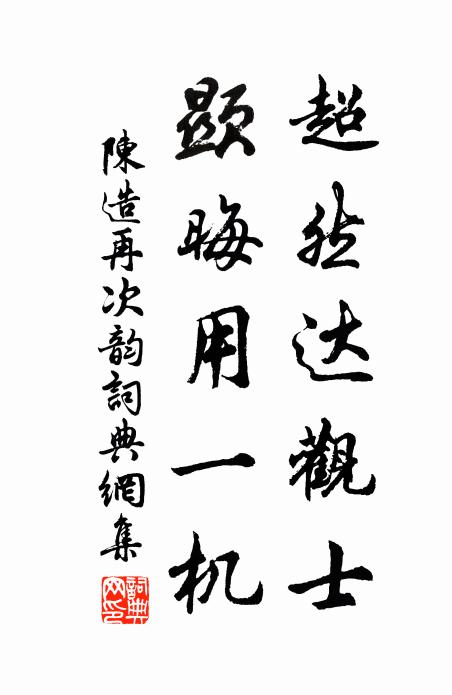 超然达觀士
顯晦用一机
陳造再次韵詞典網集